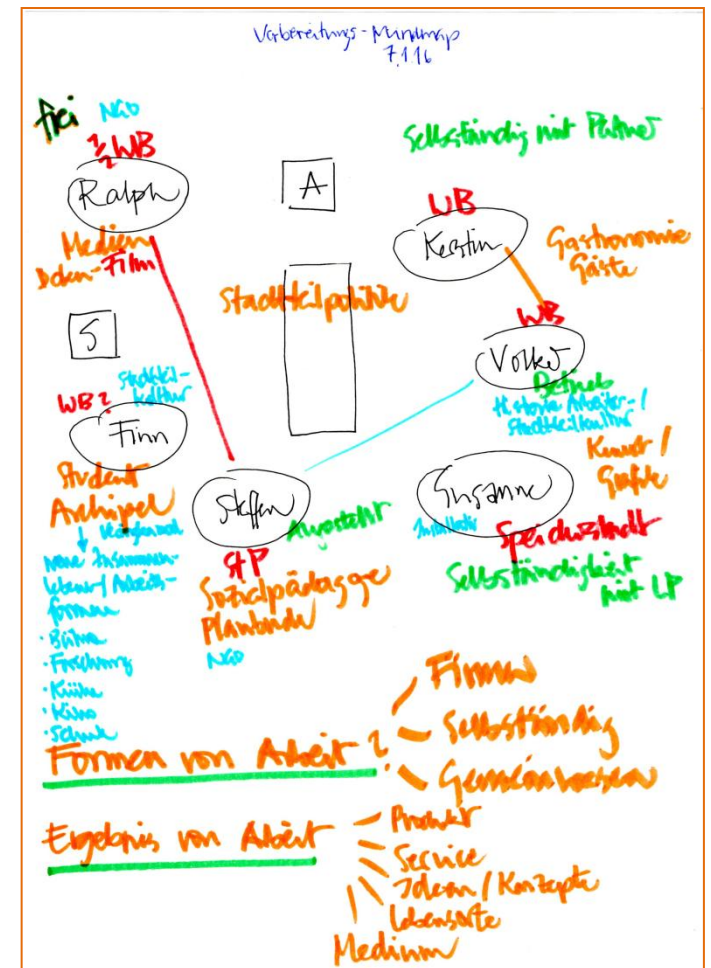 Vorbereitungs-Mindmap
7.1.16
frei NGO
1/2 WB
Ralph
Medien
Doku-Film
A
Selbständig mit Partner
WB
Kerstin
Gastronomie
Gäste
Stadtteilpolitik
S
WB
Volker
Betrieb
Historie Arbeiter-/
Stadtteilkultur
Kunst /
Grafik
Stadtteil-
kultur
WB?
Finn
Student
Archipel
neue Zusammen-
leben/Arbeits-
formen
· Bühne
· Forschung
· Küche
· Kino
· Schule
Steffen
Angestellt
StP
Sozialpädagoge
Planbude
NGO
Susanne
Speicherstadt
Selbständigkeit
mit LP
Formen von Arbeit?
Firmen
Selbständig
Gemeinwesen
Ergebnis von Arbeit
Produkt
Service
Ideen / Konzepte
Lebensorte
Medium